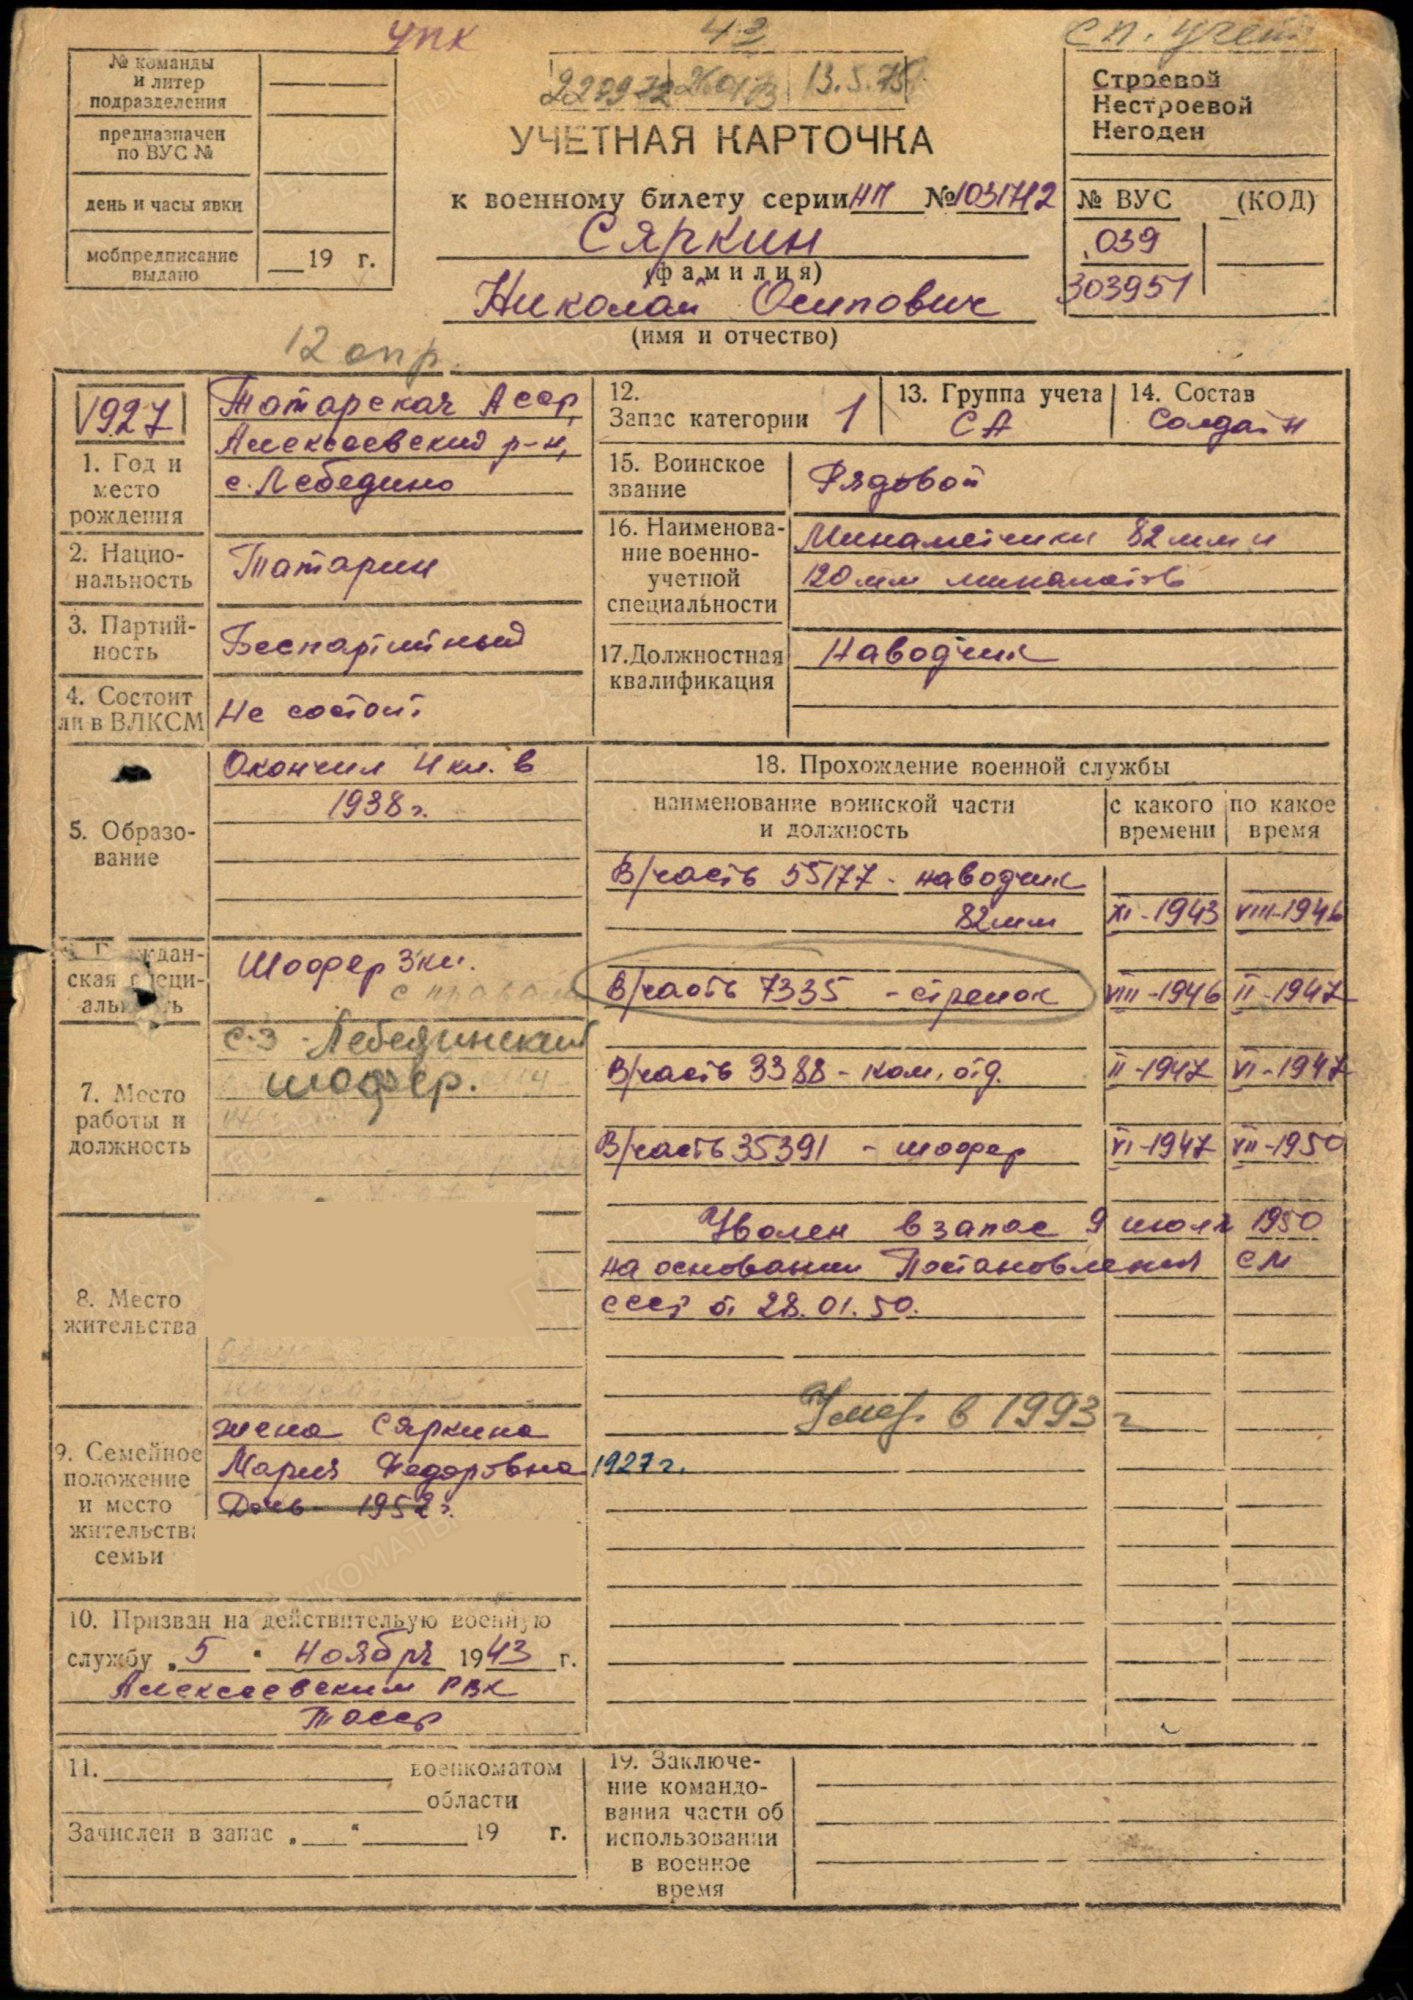 УПК
43
сп. учет
№ команды
и литер
подразделения
предназначен
по ВУС №
день и часы явки
мобпредписание
выдано
19 г.
13.5.75
УЧЕТНАЯ КАРТОЧКА
к военному билету серии НП № 1031712
Сяркин
(фамилия)
Николай Осипович
(имя и отчество)
Строевой
Нестроевой
Негоден
№ ВУС (КОД)
039
303951
12 апр.
1927
1. Год и
место
рождения
Татарская Асср,
Алексеевский р-н,
с. Лебедино
2. Нацио-
нальность
Татарин
3. Партий-
ность
Беспартийный
4. Состоит
ли в ВЛКСМ
Не состоит
5. Образо-
вание
Окончил 4 кл. в
1938 г.
ская специ-
альность
Шофер 3 кл.
7. Место
работы и
должность
с-з Лебединский
шофер.
8. Место
жительства
9. Семейное
положение
и место
жительства
семьи
жена Сяркина
Мария Федоровна 1927 г.
Дочь - 1952 г.
10. Призван на действительую военную
службу „5“ ноября 1943 г.
Алексеевским РВК
Тасср
11. военкоматом
области
Зачислен в запас „ “ 19 г.
12.
Запас категории 1
13. Группа учета
СА
14. Состав
Солдат
15. Воинское
звание
Рядовой
16. Наименова-
ние военно-
учетной
специальности
Минаметчики 82 мм и
120 мм минаметов
17. Должностная
квалификация
Наводчик
18. Прохождение военной службы
наименование воинской части
и должность
с какого
времени
по какое
время
В/часть 55177 - наводчик
82 мм XI-1943 VIII-1946
В/часть 7335 - стрелок VIII-1946 II-1947
В/часть 3388 - ком. отд. II-1947 VI-1947
В/часть 35391 - шофер VI-1947 VII-1950
Уволен в запас 9 июля 1950
на основании Постановления СМ
СССР от 28.01.50.
Умер. в 1993 г
19. Заключе-
ние командо-
вания части об
использовании
в военное
время